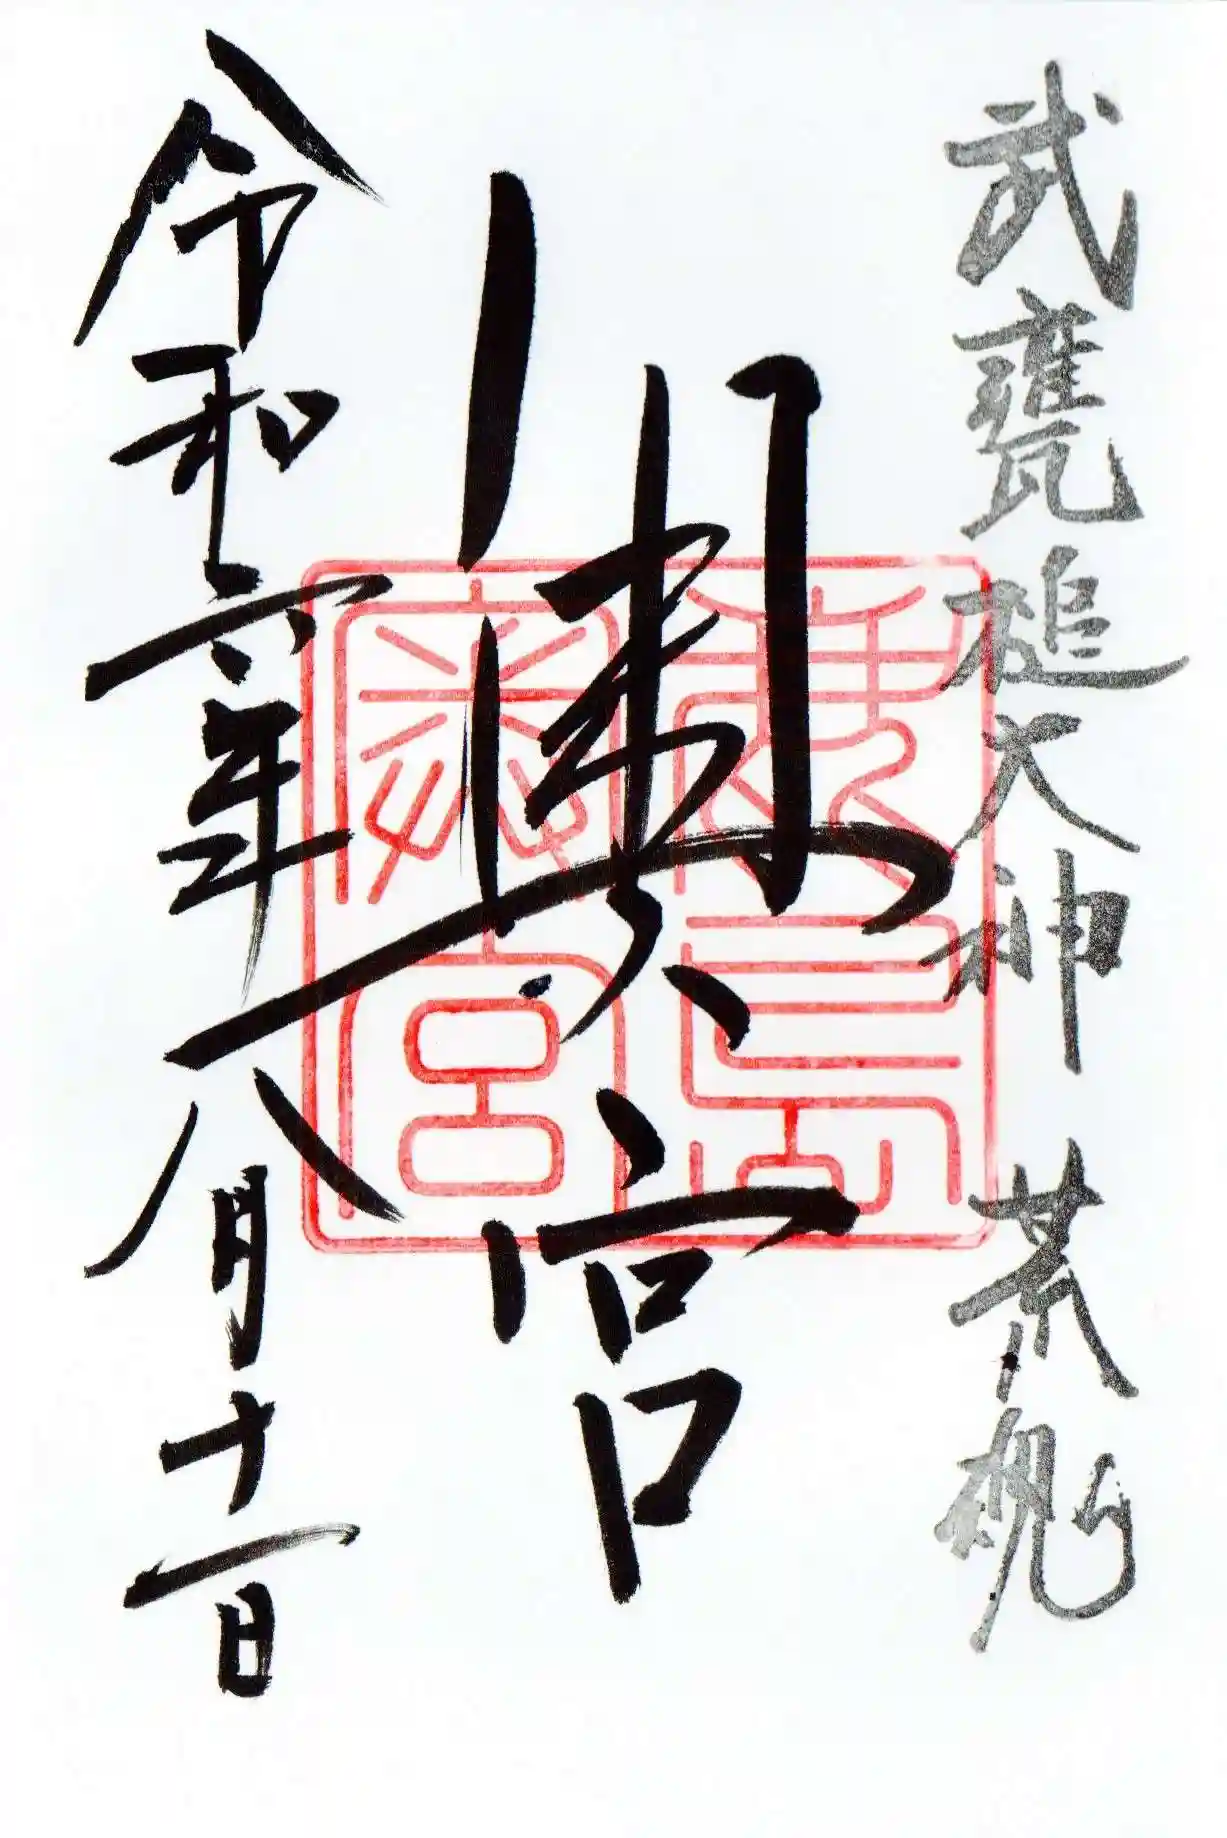 武甕槌大神 荒魂
奥宮
鹿島
奥宮
令和六年八月十一日